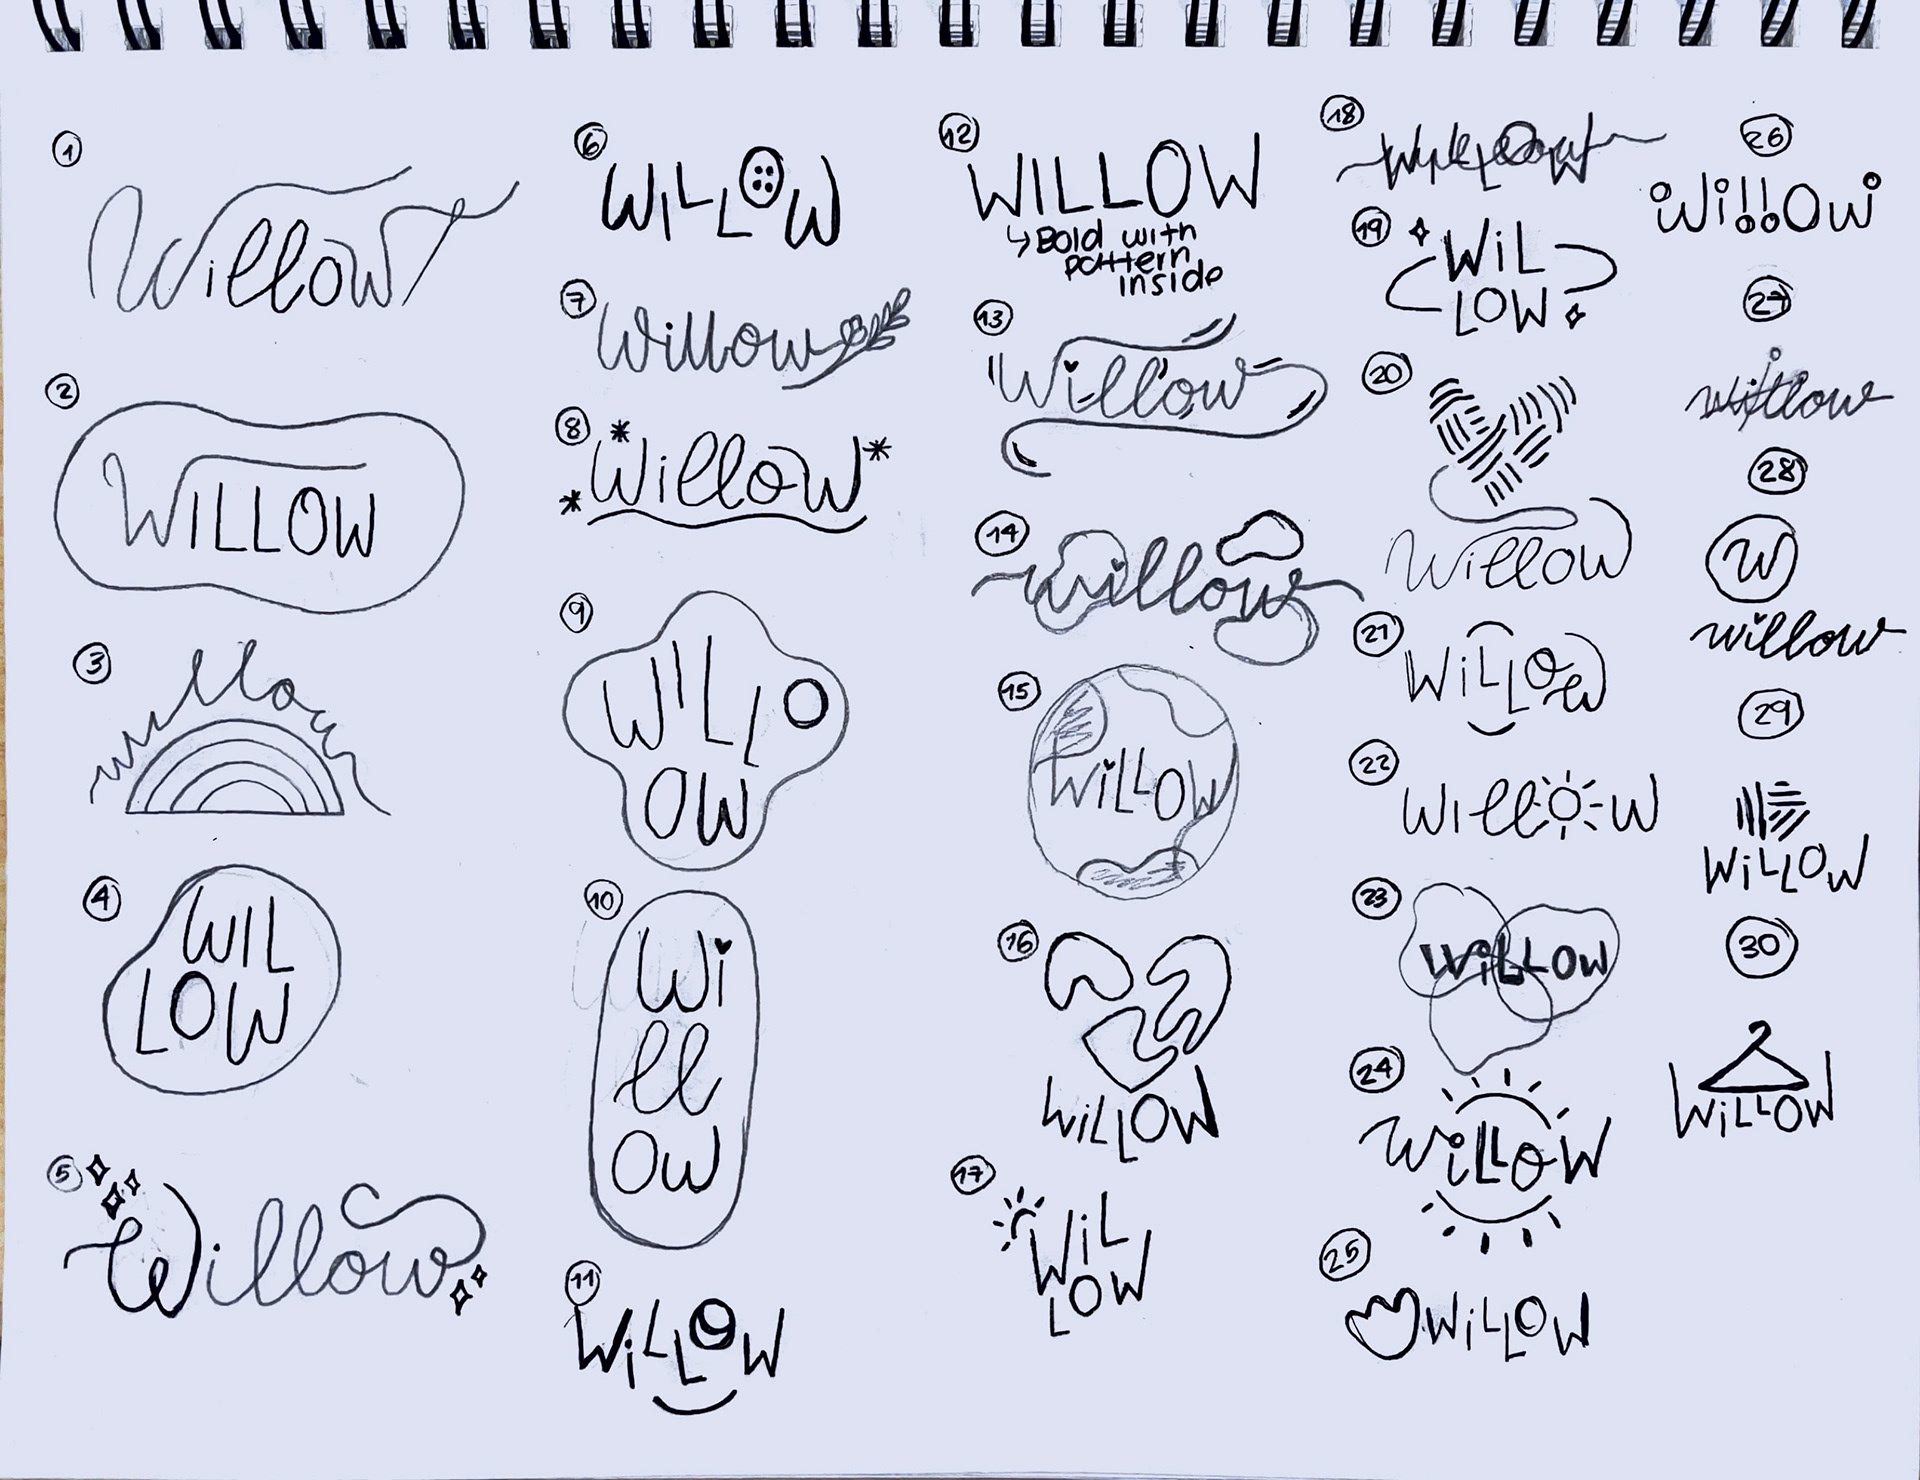 1
Willow
2
WILLOW
3
Willow
4
WIL
LOW
5
Willow
6
WILLOW
7
Willow
8
Willow
9
WILL
OW
10
Wi
ll
ow
11
WiLLOW
12
WILLOW
Bold with
pattern
inside
13
Willow
14
willow
15
WiLLOW
16
WiLLOW
17
WiL
LOW
18
19
WiL
LOW
20
Willow
21
WiLLOw
22
Willow
23
WiLLOW
24
WiLLOW
25
WiLLOW
26
WillOw
27
willow
28
W
willow
29
WiLLOW
30
WiLLOW